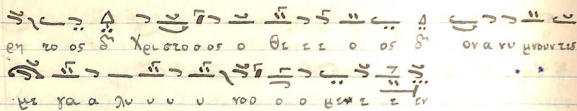 ρη το ος δη Χριστοσος ο θε ε ε ο ος δη ον α νυ μνουντες
με γα α λυ υ υ υ νοο ο ο με ε ε εν